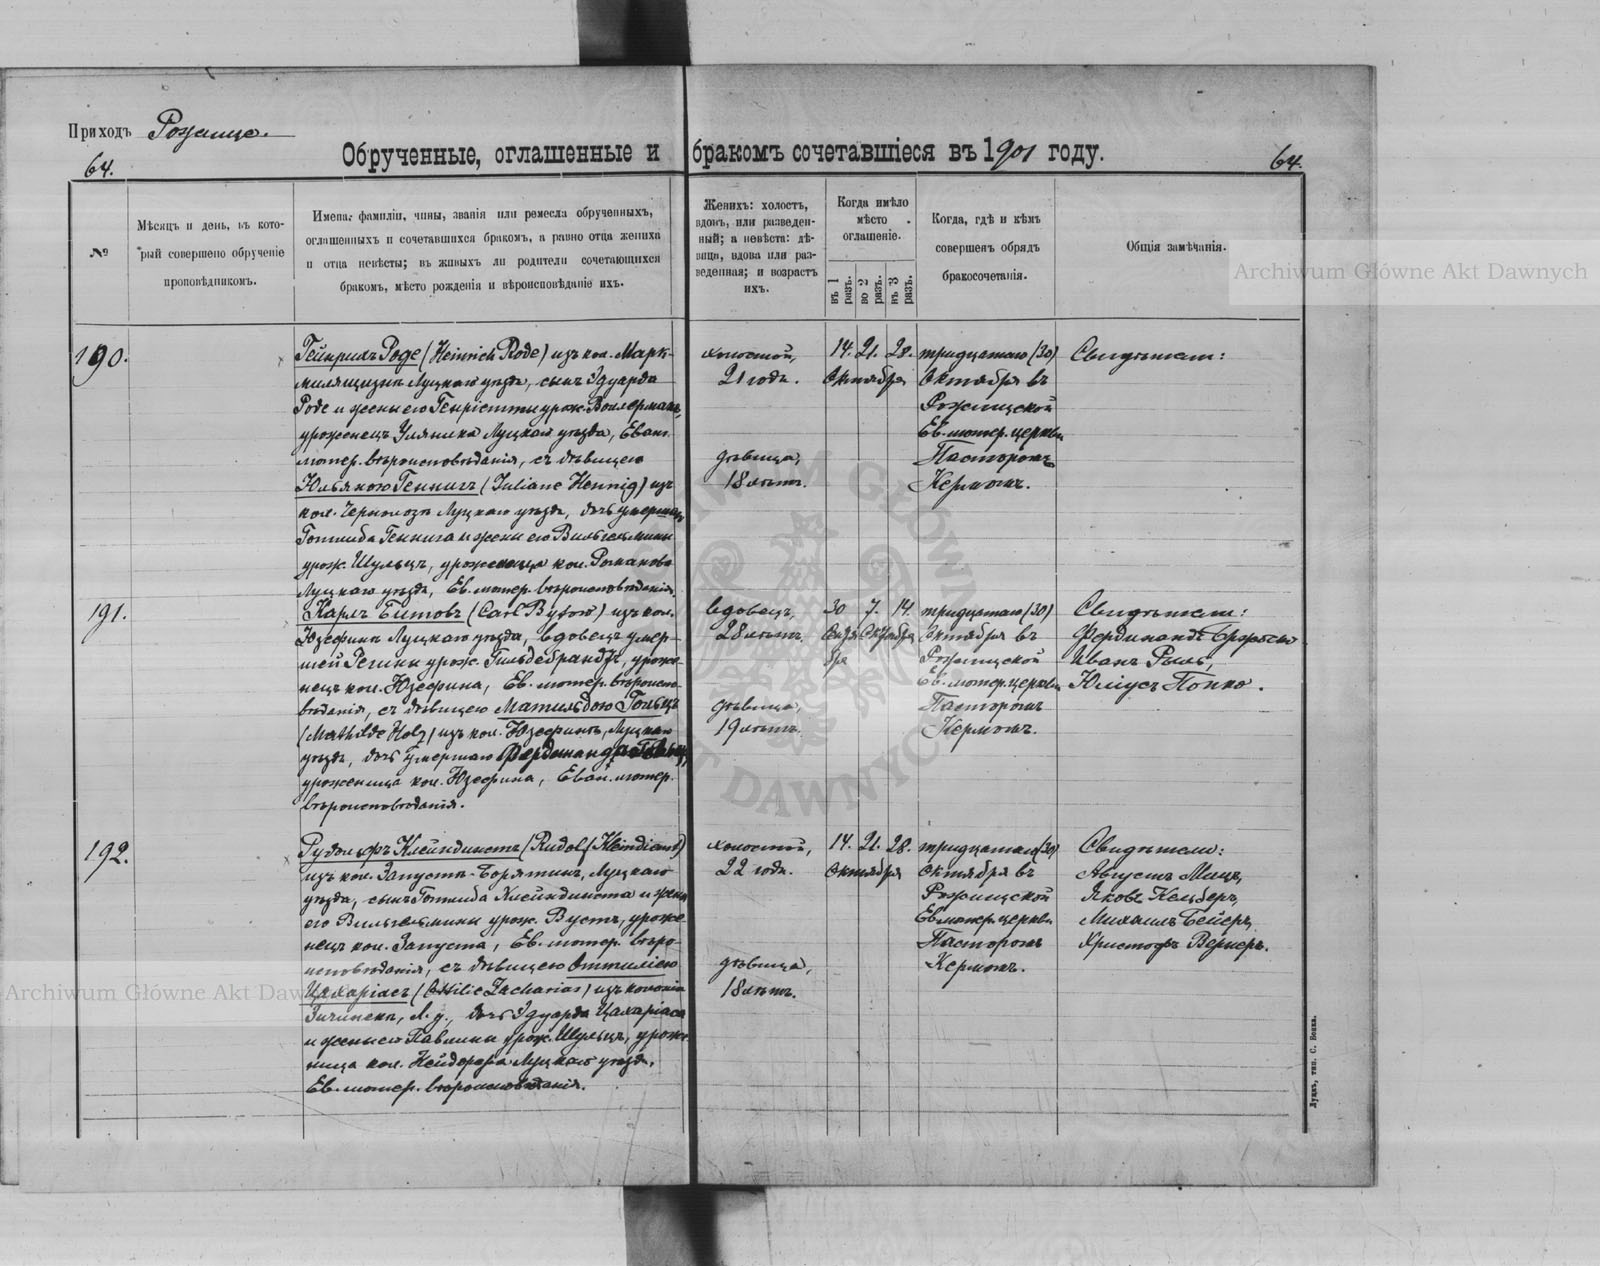 Приходъ Рожище.
64.
Обрученные, оглашенные и бракомъ сочетавшіеся въ 1901 году.
64.
№
Мѣсяцъ и день, въ кото-
рый совершено обрученіе
проповѣдникомъ.
Имена, фамиліи, чины, званія или ремесла обрученныхъ,
оглашенныхъ и сочетавшихся бракомъ, а равно отца жениха
и отца невѣсты; въ живыхъ ли родители сочетающихся
бракомъ, мѣсто рожденія и вѣроисповѣданіе ихъ.
Женихъ: холостъ,
вдовъ, или разведен-
ный; а невѣста: дѣ-
вица, вдова или раз-
веденная; и возрастъ
ихъ.
Когда имѣло
мѣсто
оглашеніе.
въ 1 разъ.
во 2 разъ.
въ 3 разъ.
Когда, гдѣ и кѣмъ
совершенъ обрядъ
бракосочетанія.
Общія замѣчанія.
190.
Гейнрихъ Роде (Heinrich Rode) изъ кол.
Луцкаго уѣзда, сынъ Эдуарда
Роде и жены его Генріетты урож.
уроженецъ Луцкаго уѣзда, Еванг.
лютер. вѣроисповѣданія, съ дѣвицею
Юльяною Геннигъ (Juliane Hennig) изъ
кол. Луцкаго уѣзда, дочь
Готлиба Геннига и жены его Вильгельмины
урож. Шульцъ, уроженица кол. Романово
Луцкаго уѣзда, Ев. лютер. вѣроисповѣданія.
холостой,
21 годъ.
дѣвица,
18 лѣтъ.
14. 21. 28.
Октября
тридцатаго (30)
Октября въ
Рожищской
Ев. лютер. церкви
Пасторомъ
Кермомъ.
Свидѣтели:
191.
Карлъ Битовъ (Carl Bytow) изъ кол.
Юзефинъ Луцкаго уѣзда, вдовецъ умер-
шей Регины урож. Гильдебрандтъ, уроже-
нецъ кол. Юзефина, Ев. лютер. вѣроиспо-
вѣданія, съ дѣвицею Матильдою Гольцъ
(Mathilde Holz) изъ кол. Юзефинъ, Луцкаго
уѣзда, дочь умершаго Фердинанда
уроженица кол. Юзефина, Еван. лютер.
вѣроисповѣданія.
вдовецъ,
28 лѣтъ.
дѣвица,
19 лѣтъ.
30 7. 14.
Сентя Октября
бря
тридцатаго (30)
Октября въ
Рожищской
Ев. лютер. церкви
Пасторомъ
Кермомъ.
Свидѣтели:
Фердинандъ
Иванъ Рыль,
Юліусъ Попко.
192.
Рудольфъ Клейндинстъ (Rudolf Kleindienst)
изъ кол. Запустъ-Борятинъ, Луцкаго
уѣзда, сынъ Готлиба Клейндинста и жены
его Вильгельмины урож. Вустъ, уроже
нецъ кол. Запуста, Ев. лютер. вѣро-
исповѣданія, съ дѣвицею Оттиліею
Цахаріасъ (Ottilie Zacharias) изъ колоніи
Л. у., дочь Эдуарда Цахаріаса
и жены его Павлины урож. Шульцъ, уроже
ница кол. Нейдорфа Луцкаго уѣзда,
Ев. лютер. вѣроисповѣданія.
холостой,
22 года.
дѣвица,
18 лѣтъ.
14. 21. 28.
Октября
тридцатаго (30)
Октября въ
Рожищской
Ев. лютер. церкви
Пасторомъ
Кермомъ.
Свидѣтели:
Августъ Мацъ,
Яковъ Кельберъ,
Михаилъ Бейеръ,
Христофъ Вернеръ.
Луцкъ, тип. С. Бонка.
Archiwum Główne Akt Dawnych
Archiwum Główne Akt Dawnych